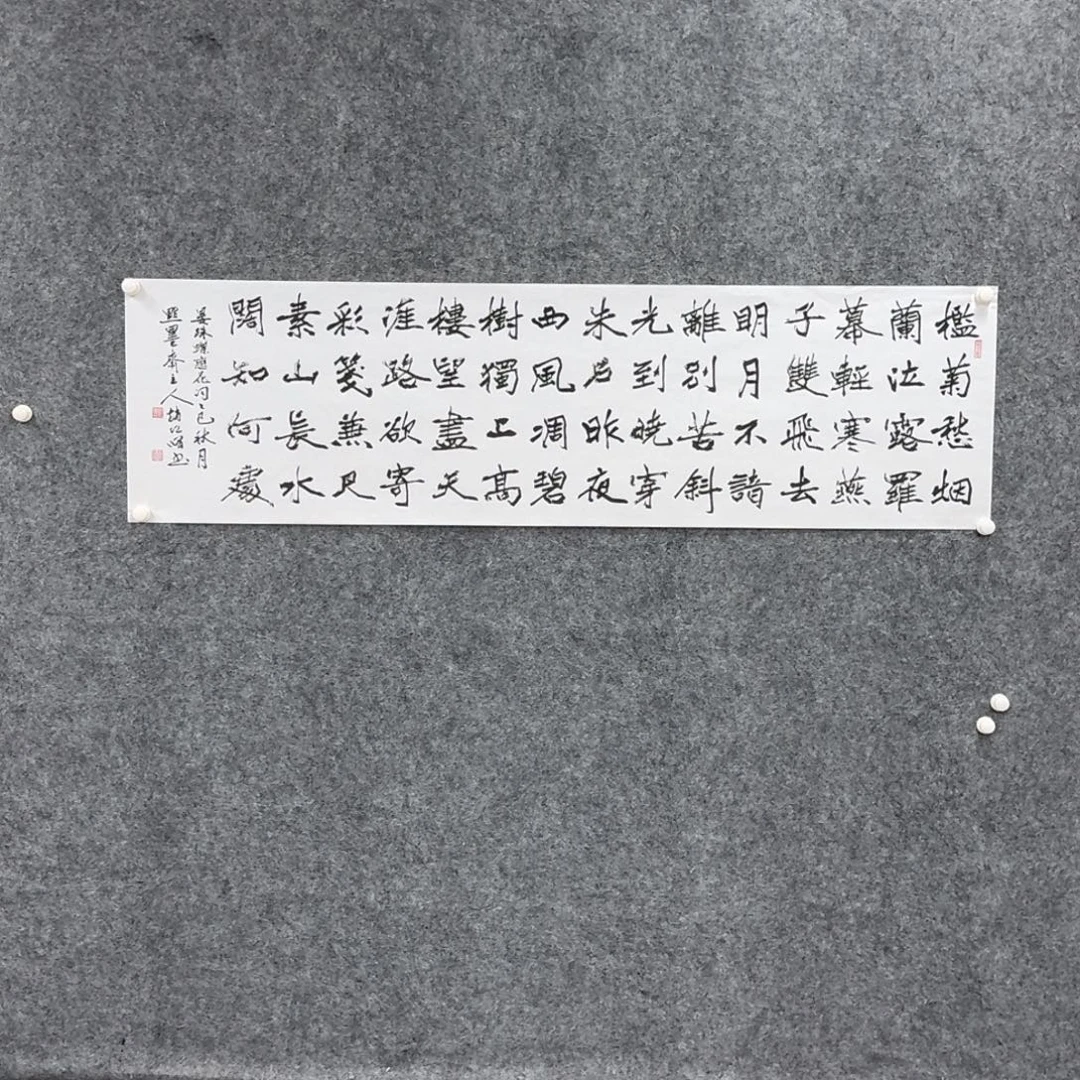 檻菊愁烟
蘭泣露羅
幕輕寒燕
子雙飛去
明月不諳
離別苦斜
光到曉穿
朱戶昨夜
西風凋碧
樹獨上高
樓望盡天
涯路欲寄
彩箋兼尺
素山長水
闊知何處
晏殊蝶戀花詞乙巳秋月
墨齋主人